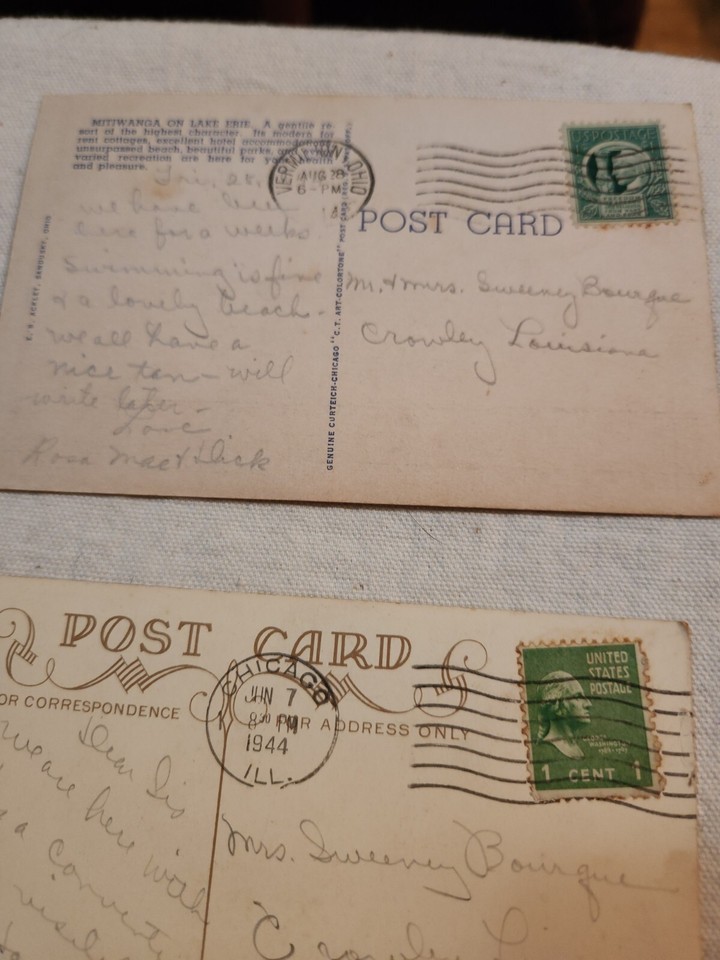 MITIWANGA ON LAKE ERIE. A gentile re-
sort of the highest character. Its modern
rent cottages, excellent hotel accommodations
unsurpassed beach, beautiful parks, and
varied recreation are here for your health
and pleasure.
VERMILION, OHIO
AUG 28
6-PM
POSTAGE
POST CARD
Fri. 28,
we have been
here for a weeks
Swimming is fine
& a lovely beach.
we all have a
nice tan - will
write later -
Love
Rosa Mae & Dick
E. B. ACKLEY, SANDUSKY, OHIO
GENUINE CURTEICH-CHICAGO "C.T. ART-COLORTONE" POST CARD
Mr. & Mrs. Sweeney Bourque
Crowley Louisiana
POST CARD
OR CORRESPONDENCE
FOR ADDRESS ONLY
CHICAGO
JUN 7
8 30 PM
1944
ILL.
UNITED
STATES
POSTAGE
GEORGE
WASHINGTON
1 CENT 1
Dear Sis
we are here with
a conventi
Mrs. Sweeney Bourque
Crowley